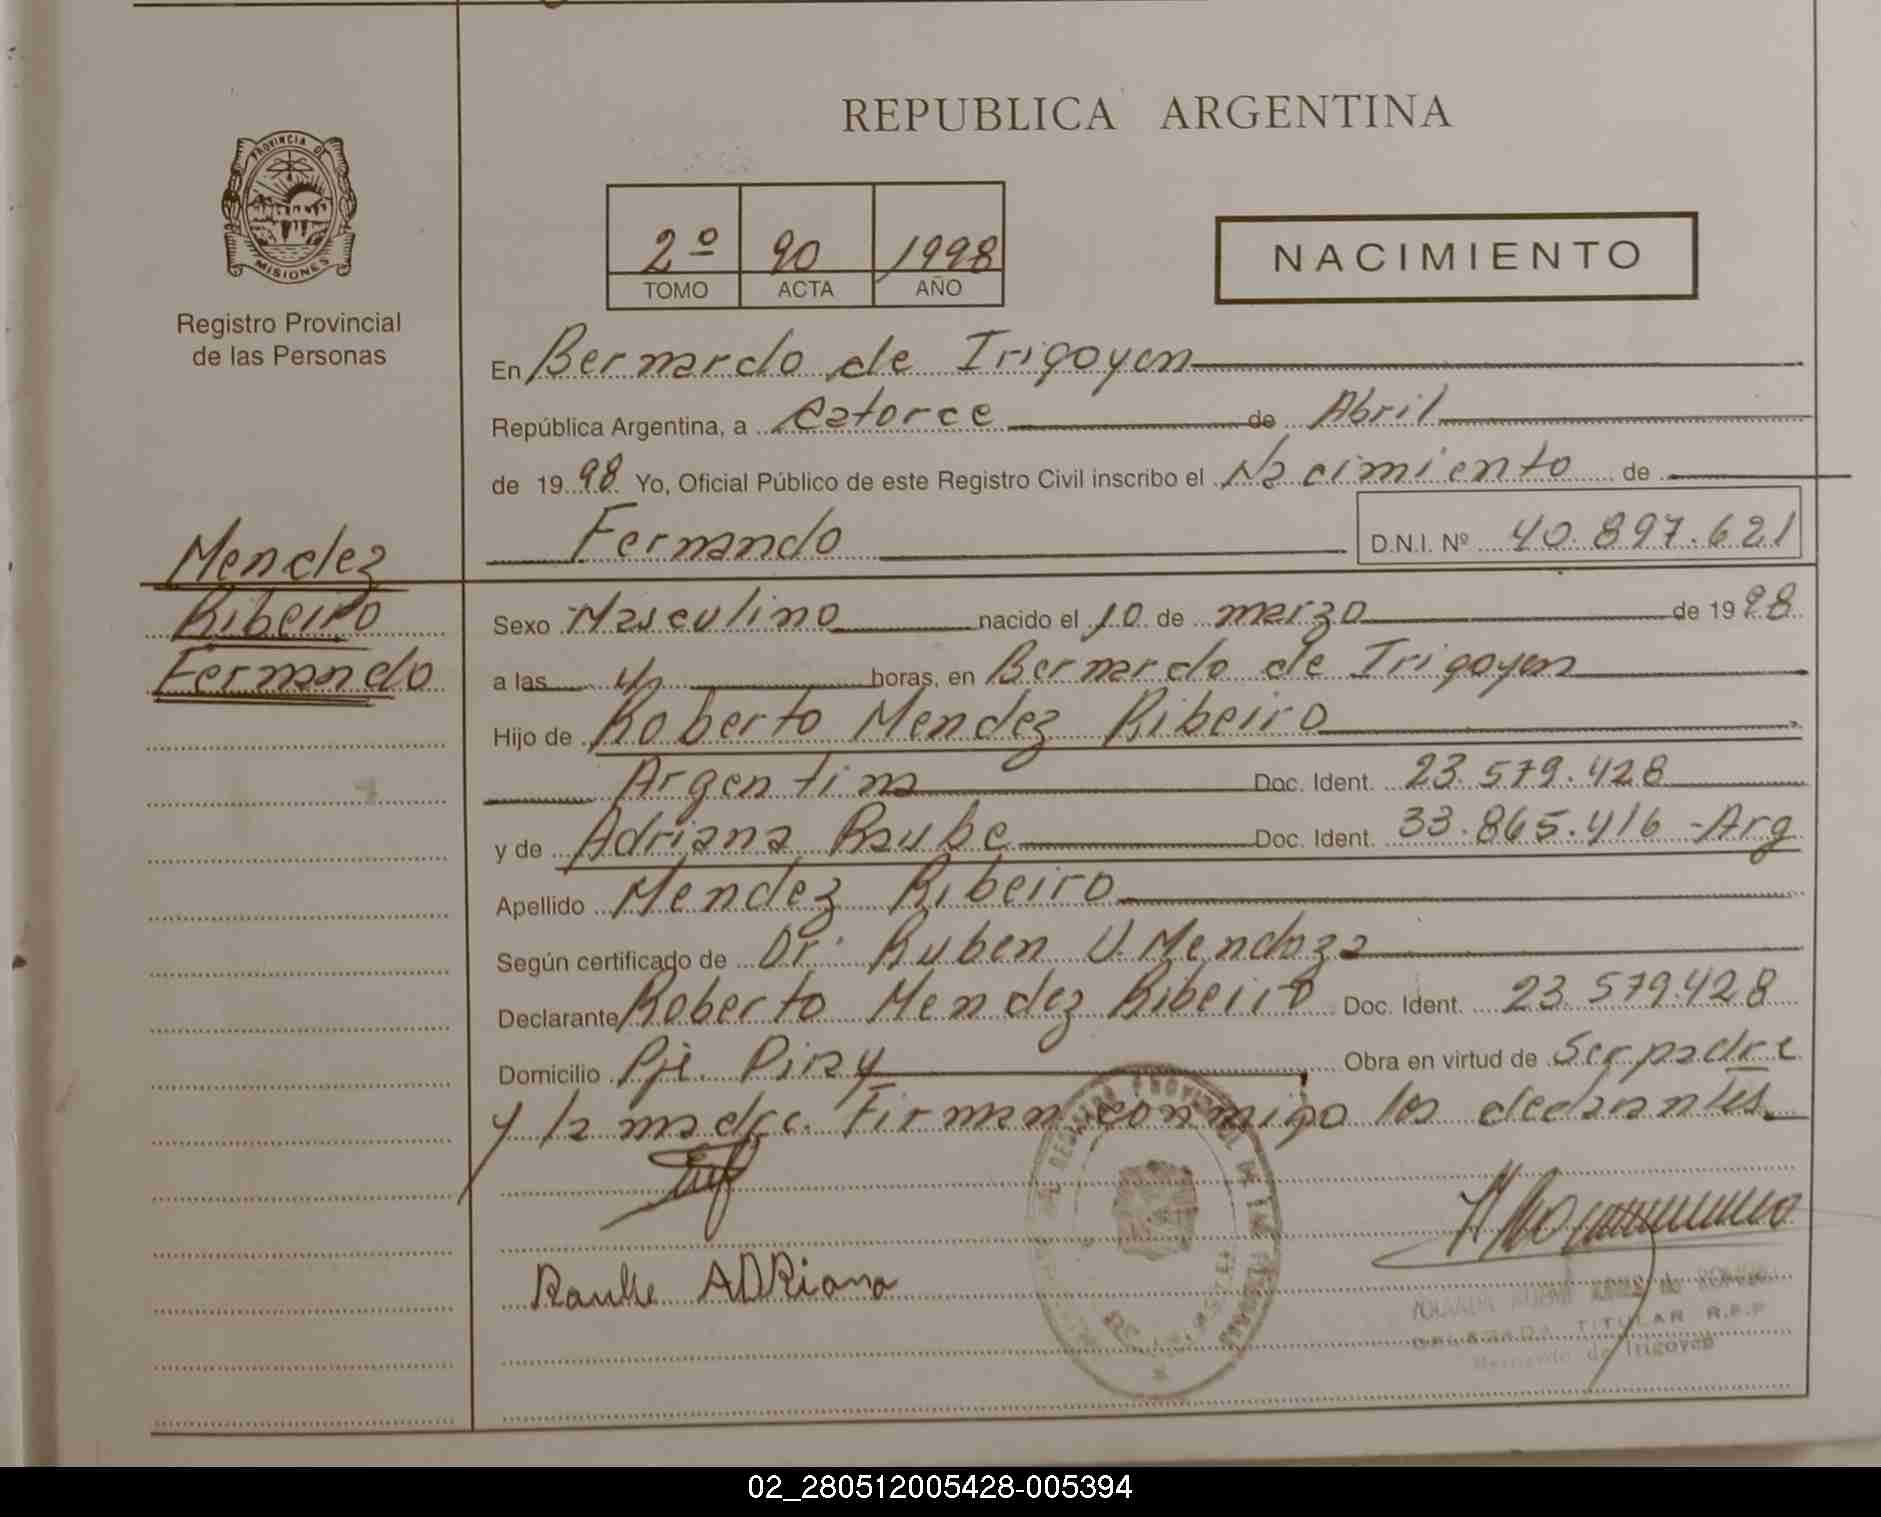 REPUBLICA ARGENTINA
PROVINCIA DE
MISIONES
Registro Provincial
de las Personas
2º 90 1998
TOMO ACTA AÑO
NACIMIENTO
En Bernardo de Irigoyen
República Argentina, a Catorce de Abril
de 1998 Yo, Oficial Público de este Registro Civil inscribo el Nacimiento de
Fernando D.N.I. Nº 40.897.621
Mendez
Ribeiro
Fernando
Sexo Masculino nacido el 10 de marzo de 1998
a las horas, en Bernardo de Irigoyen
Hijo de Roberto Mendez Ribeiro
Argentina Doc. Ident. 23.579.428
y de Adriana Raube Doc. Ident. 33.865.416 - Arg
Apellido Mendez Ribeiro
Según certificado de Dr. Ruben U. Mendoza
Declarante Roberto Mendez Ribeiro Doc. Ident. 23.579.428
Domicilio Pje. Piray Obra en virtud de Ser padre
y la madre. Firman conmigo los declarantes
Raube ADRiana
TITULAR R.P.P
Bernardo de Irigoyen
02_280512005428-005394